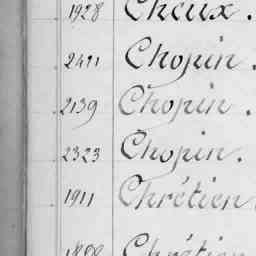 1928 Cheux.
2471 Chopin.
2139 Chopin.
2323 Chopin.
1911 Chrétien
Chrétien